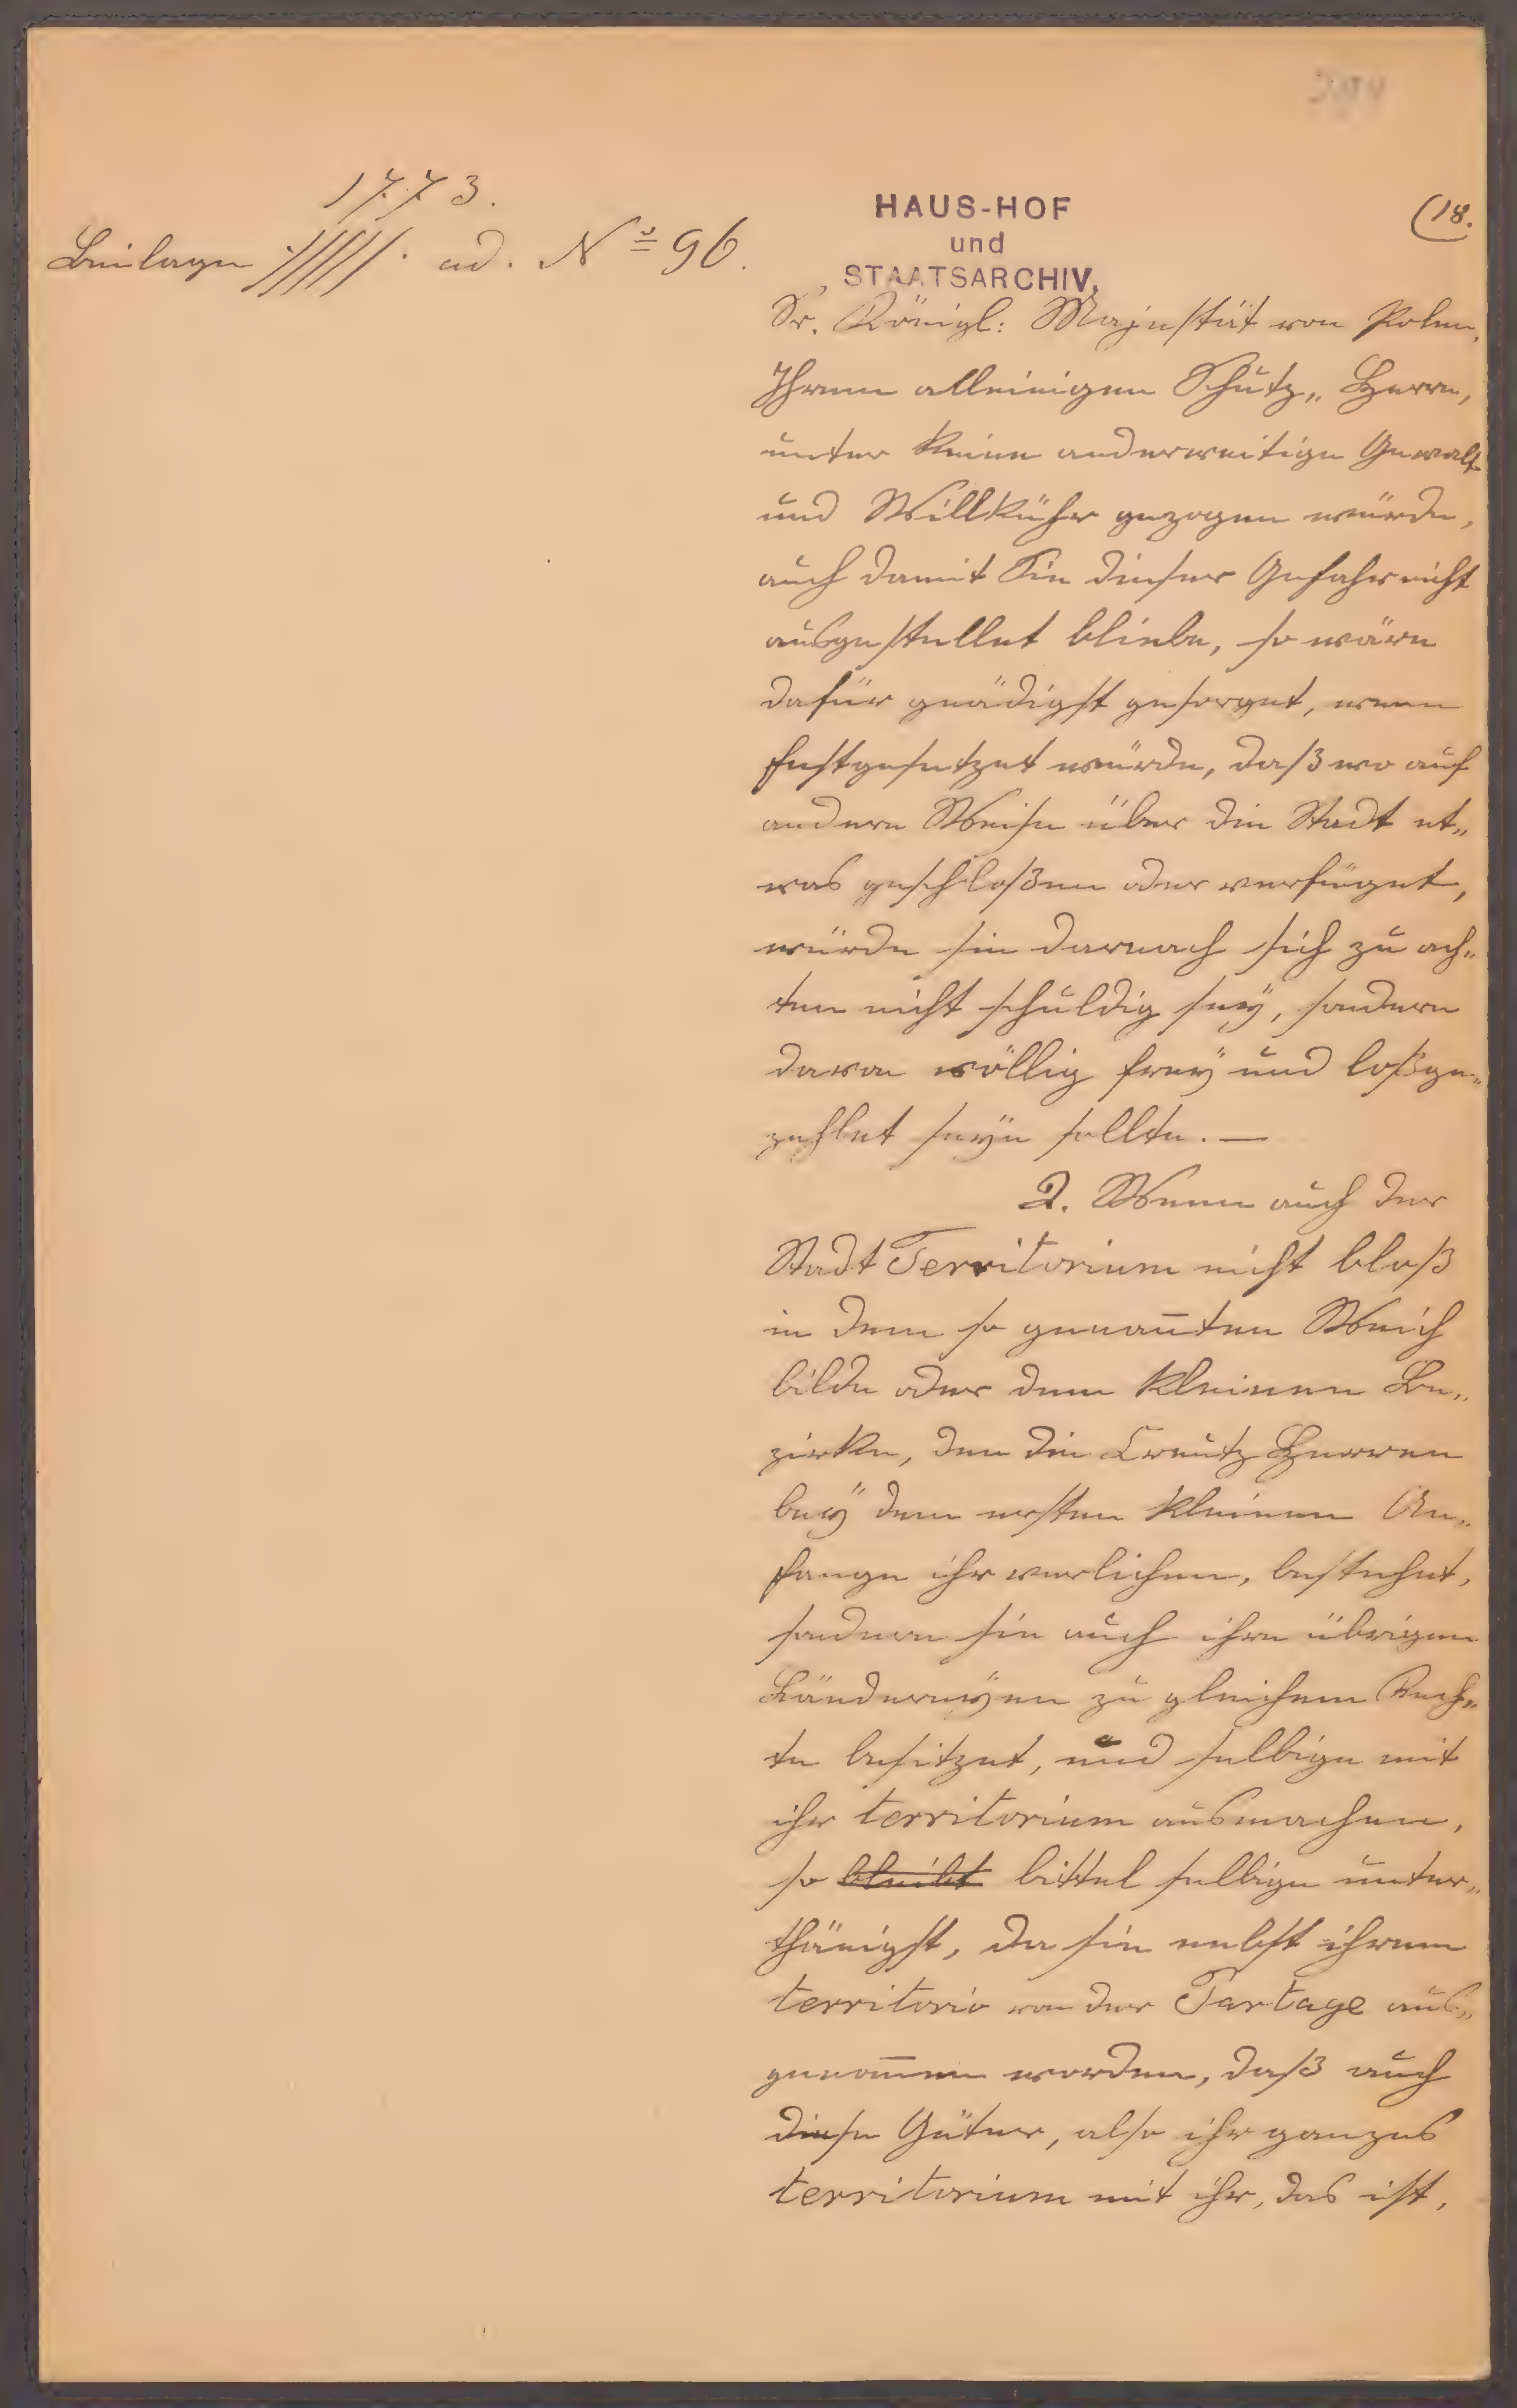 1773.
Beilage ·/////. ad. Nº 96.
HAUS-HOF
und
STAATSARCHIV,
(18.
Sr. Königl: Majestät von Polen,
Ihrem alleinigen Schutz„ Herrn,
unter keine anderweitige Gewalt
und Willkühr gezogen würde,
auch damit Sie dieser Gefahr nicht
ausgestellet bliebe, so wäre
dafür gnädigst gesorget, wenn
festgesetzet würde, daß wo auf
andere Weise über die Stadt et„
was geschloßen oder verfüget,
würde sie darnach sich zu ach„
ten nicht schuldig seÿ, sondern
davon völlig freÿ und loßge„
zehlet seÿn sollte. —
2. Wenn auch der
Stadt Territorium nicht bloß
in dem so genan̄ten Weich
bilde oder dem kleinen Be„
zirke, den die Creutz Herren
beÿ dem ersten kleinen An„
fange ihr verliehen, bestehet,
sondern sie auch ihre übrigen
Ländereÿen zu gleichem Rech„
te besitzet, und selbige mit
ihr territorium ausmachen,
so bleibt bittel selbige unter„
thänigst, da sie nebst ihrem
territorio von der Partage aus„
genom̄en worden, daß auch
diese Güter, also ihr ganzes
territorium mit ihr, das ist,